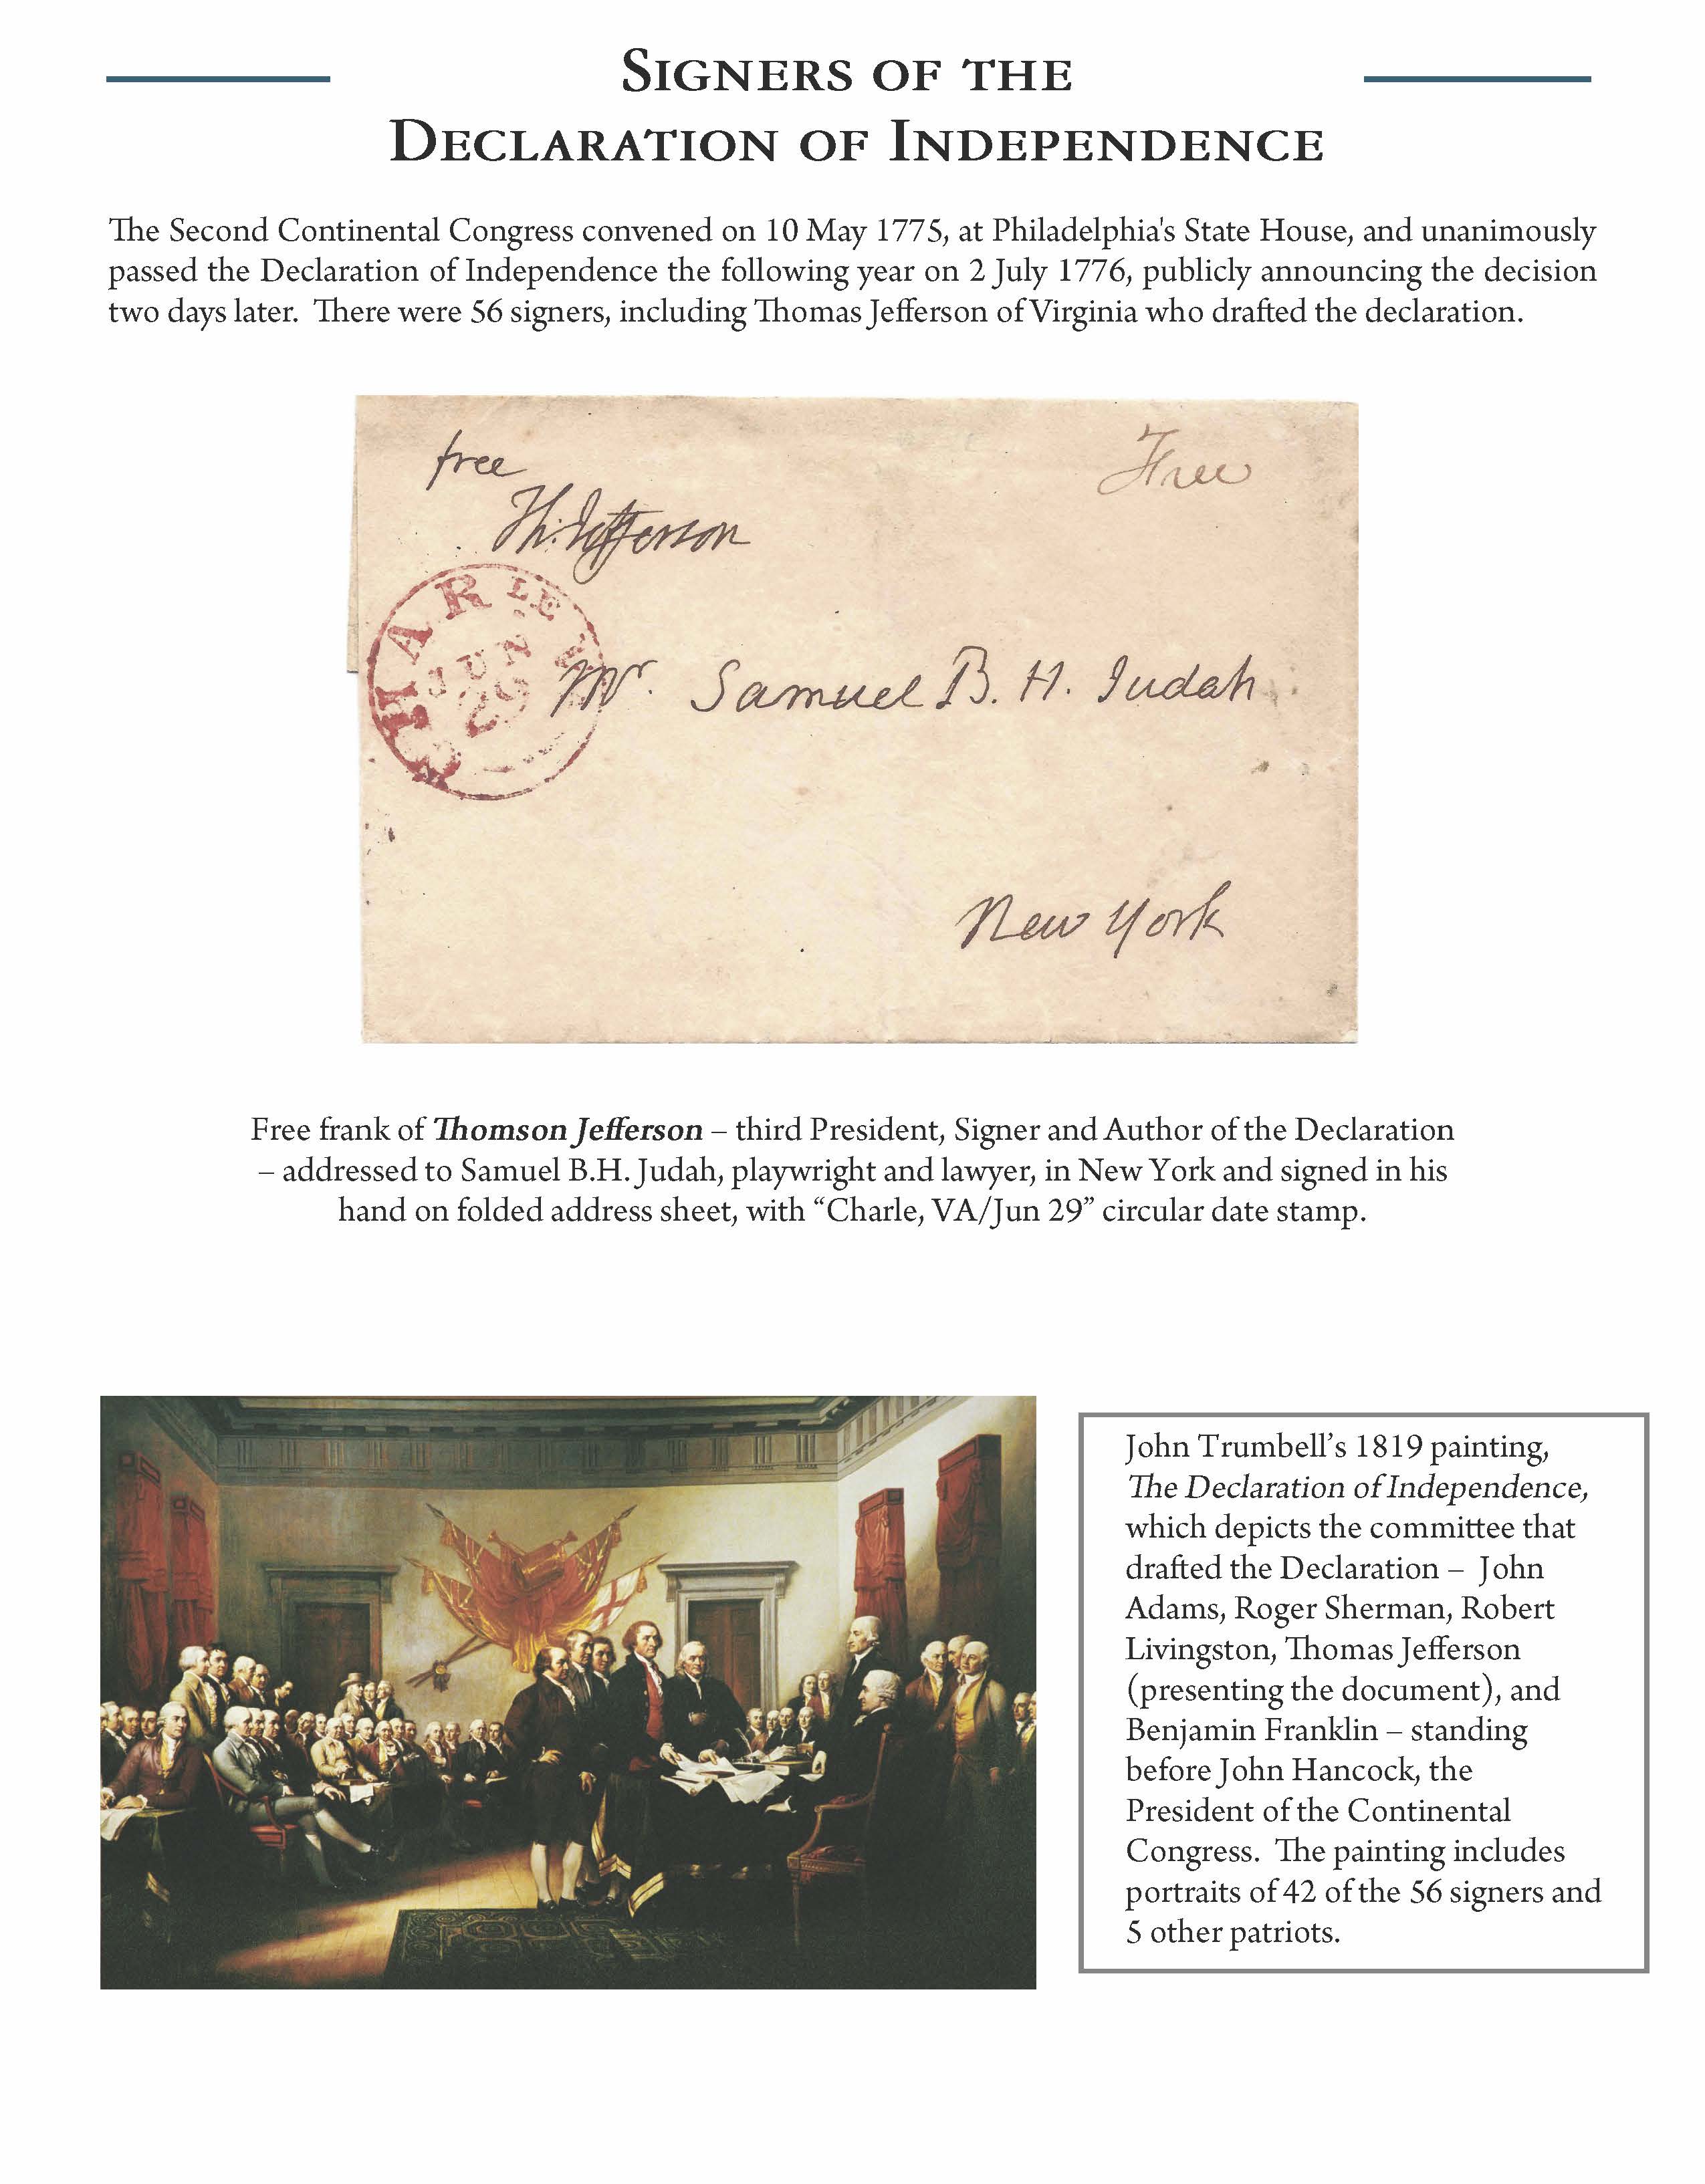 SIGNERS OF THE
DECLARATION OF INDEPENDENCE
The Second Continental Congress convened on 10 May 1775, at Philadelphia's State House, and unanimously
passed the Declaration of Independence the following year on 2 July 1776, publicly announcing the decision
two days later. There were 56 signers, including Thomas Jefferson of Virginia who drafted the declaration.
free
Free
Th: Jefferson
CHARLE
JUN
29
Mr. Samuel B. H. Judah
New York
Free frank of Thomson Jefferson – third President, Signer and Author of the Declaration
– addressed to Samuel B.H. Judah, playwright and lawyer, in New York and signed in his
hand on folded address sheet, with “Charle, VA/Jun 29” circular date stamp.
John Trumbell’s 1819 painting,
The Declaration of Independence,
which depicts the committee that
drafted the Declaration – John
Adams, Roger Sherman, Robert
Livingston, Thomas Jefferson
(presenting the document), and
Benjamin Franklin – standing
before John Hancock, the
President of the Continental
Congress. The painting includes
portraits of 42 of the 56 signers and
5 other patriots.